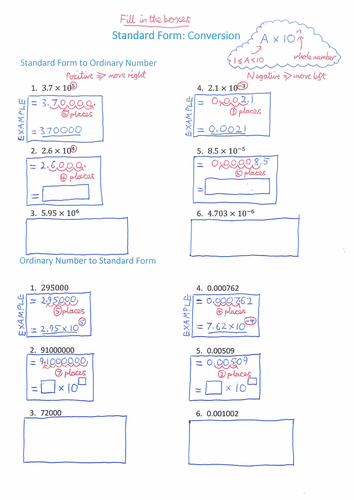 Fill in the boxes
Standard Form: Conversion
A × 10ⁿ
1 ≤ A < 10
whole number
Standard Form to Ordinary Number
Positive ⇒ move right
Negative ⇒ move left
1. 3.7 × 10⁵
EXAMPLE
= 3.70000.
5 places
= 370000
2. 2.6 × 10⁴
= 2.6000.
4 places
=
3. 5.95 × 10⁶
4. 2.1 × 10⁻³
EXAMPLE
= 0.002.1
3 places
= 0.0021
5. 8.5 × 10⁻⁵
= 0.00008.5
5 places
=
6. 4.703 × 10⁻⁶
Ordinary Number to Standard Form
1. 295000
EXAMPLE
= 295000.
5 places
= 2.95 × 10⁵
2. 91000000
= 91000000.
7 places
= × 10
3. 72000
4. 0.000762
EXAMPLE
= 0.000762
4 places
= 7.62 × 10⁻⁴
5. 0.00509
= 0.00509
3 places
= × 10
6. 0.001002